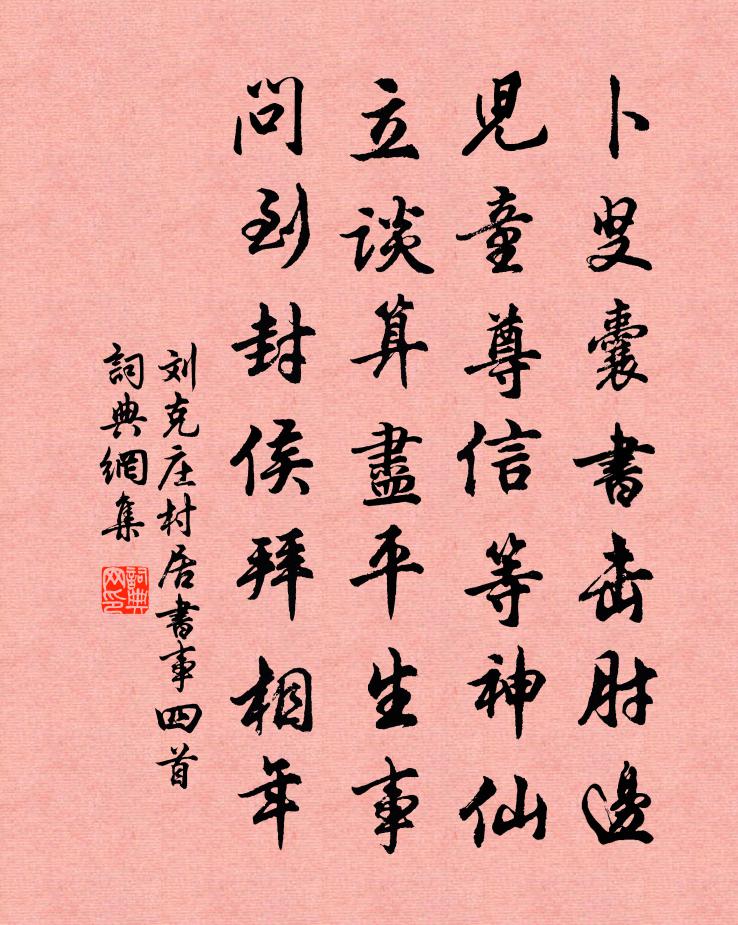 卜叟囊書出肘邊
兒童尊信等神仙
立談算盡平生事
問到封侯拜相年
刘克庄村居書事四首
詞典網集
詞典网印